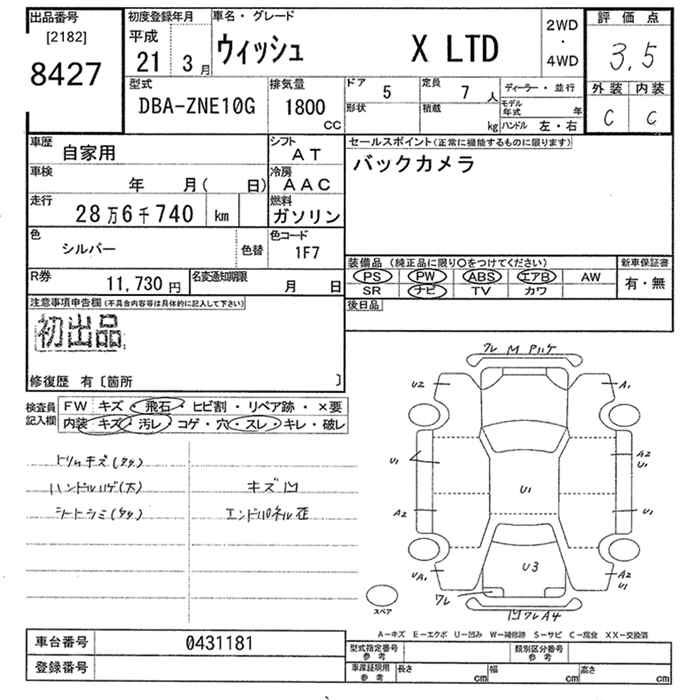 出品番号 初度登録年月 車名・グレード 2WD ・ 4WD 評価点
[2182] 8427 平成 21 3月 ウィッシュ X LTD 3.5
型式 DBA-ZNE10G 排気量 1800 CC ドア 5 定員 7 人 ディーラー・並行 外装 内装
形状 積載 kg モデル年式 年 ハンドル 左・右 C C
車歴 自家用 シフト AT セールスポイント(正常に機能するものに限ります)
車検 年 月( 日) 冷房 AAC バックカメラ
走行 28万6千740 km 燃料 ガソリン
色 シルバー 色替 色コード 1F7
装備品(純正品に限り○をつけてください) 新車保証書
R券 11,730円 名変通知期限 月 日 PS PW ABS エアB AW 有・無
SR ナビ TV カワ
注意事項申告欄(不具合内容等は具体的に記入して下さい) 後日品
初出品
修復歴 有〔箇所 〕
検査員記入欄 FW キズ・飛石・ヒビ割・リペア跡・×要
内装 キズ・汚レ・コゲ・穴・スレ・キレ・破レ
トリムキズ(タタ)
ハンドルハゲ(大) キズ凹
シートシミ(タタ) エンドパネル歪
ワレ M Pハゲ
U2 A1
U1 A2 U1
U1
A2 U1
UA1 U3 A2 U1
ワレ
凹ワレA4
スペア
A−キズ E−エクボ U−凹み W−補修跡 S−サビ C−腐食 XX−交換済
車台番号 0431181 型式指定番号 参考 類別区分番号 参考
登録番号 車庫証明用 参考 長さ cm 幅 cm 高さ cm